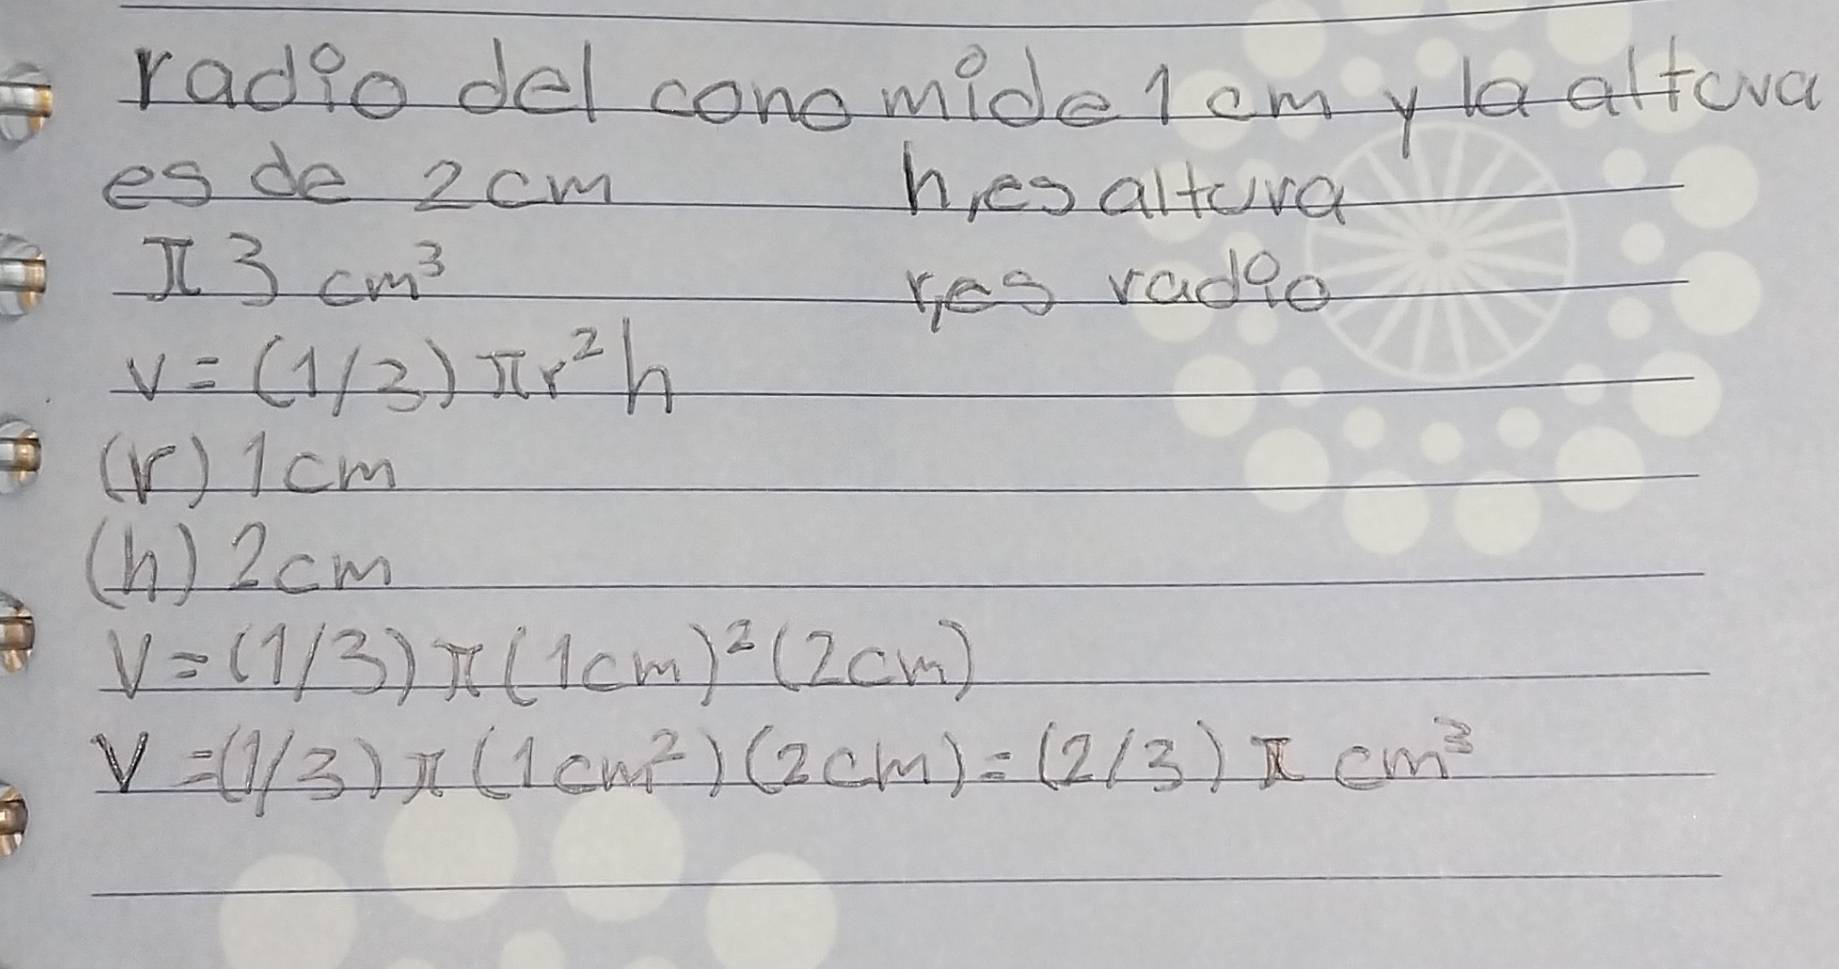 radio del cono mide 1 cm y la altura
es de 2 cm h, es altura
π 3 cm³ r, es radio
v = (1/3) πr²h
(r) 1 cm
(h) 2 cm
V = (1/3) π (1cm)² (2cm)
V = (1/3) π (1 cm²) (2cm) = (2/3) π cm³